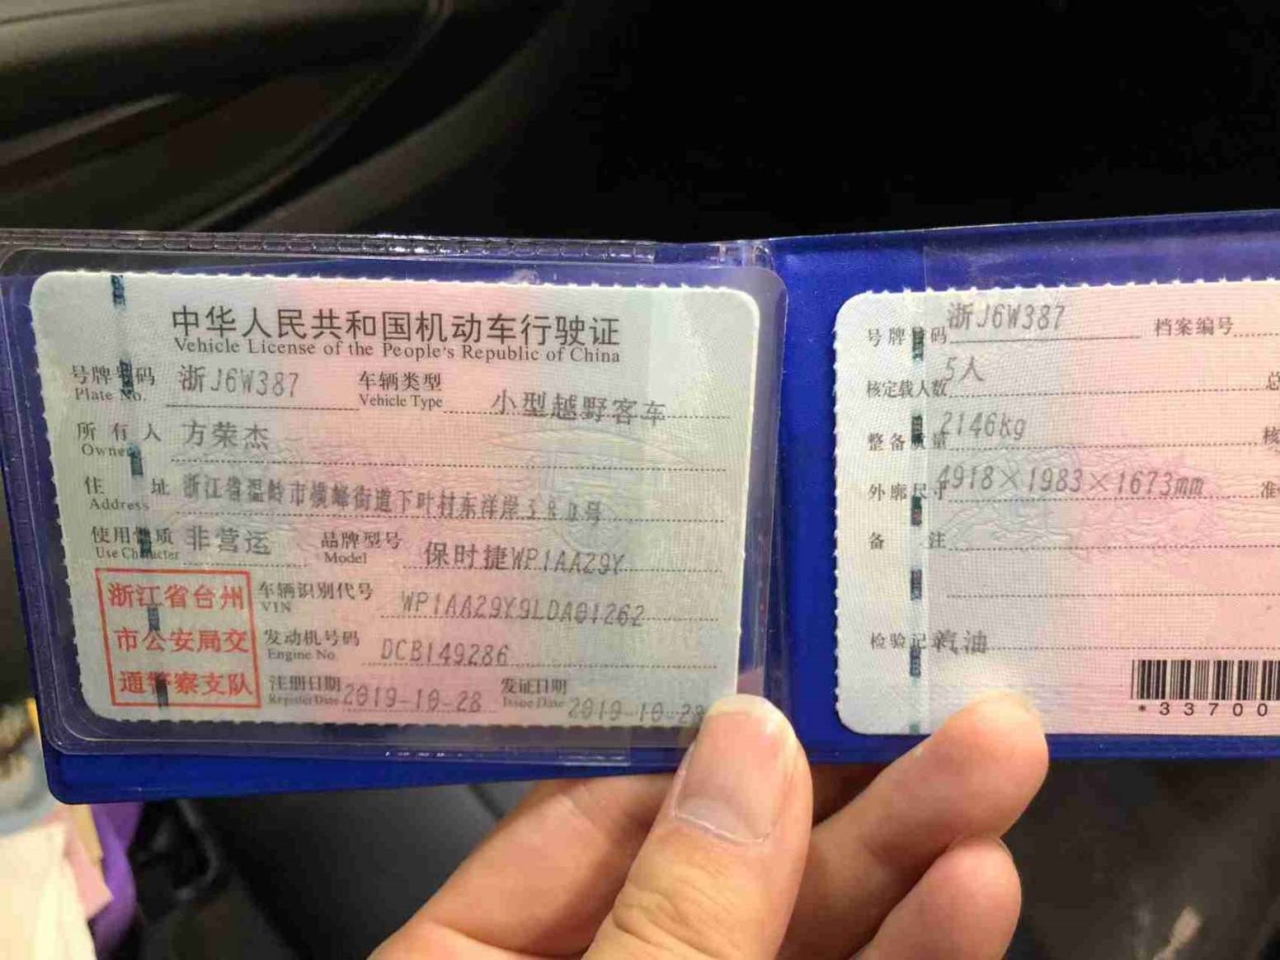 中华人民共和国机动车行驶证
Vehicle License of the People's Republic of China
号牌号码 浙J6W387 车辆类型 小型越野客车
Plate No. Vehicle Type
所有人 方荣杰
Owner
住址 浙江省温岭市横峰街道下叶村东洋岸380号
Address
使用性质 非营运 品牌型号 保时捷WP1AA29Y
Use Character Model
浙江省台州
市公安局交
通警察支队
车辆识别代号 WP1AA29Y9LDA01262
VIN
发动机号码 DCB149286
Engine No.
注册日期 2019-10-28 发证日期 2019-10-28
Register Date Issue Date
号牌号码 浙J6W387 档案编号
核定载人数 5人 总
整备质量 2146kg 核
外廓尺寸 4918×1983×1673mm 准
备注
检验记 汽油
*33700